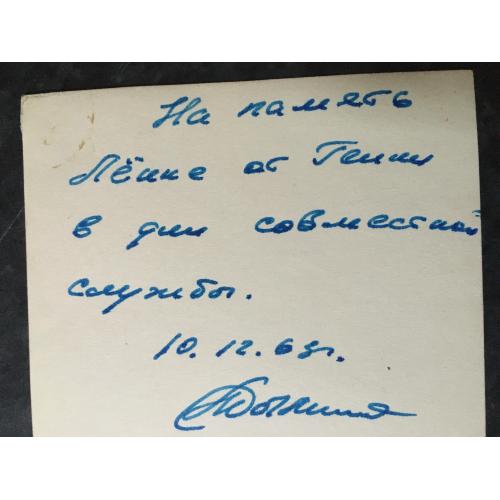 На память
Лёнке от Генки
в дни совместной
службы.
10.12.63г.